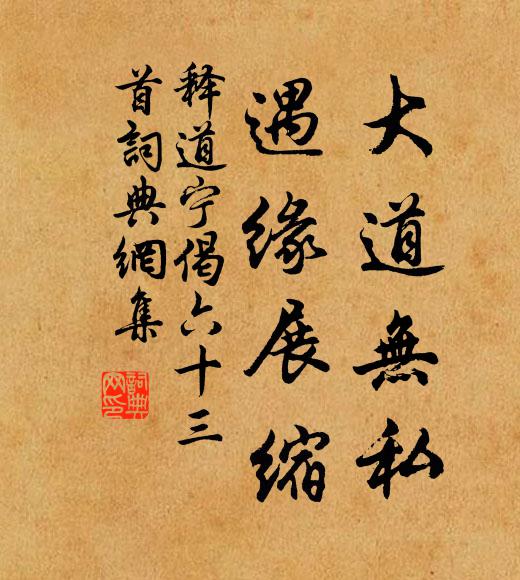 大道無私
遇緣展縮
释道宁偈六十三
首詞典網集
詞典
网印